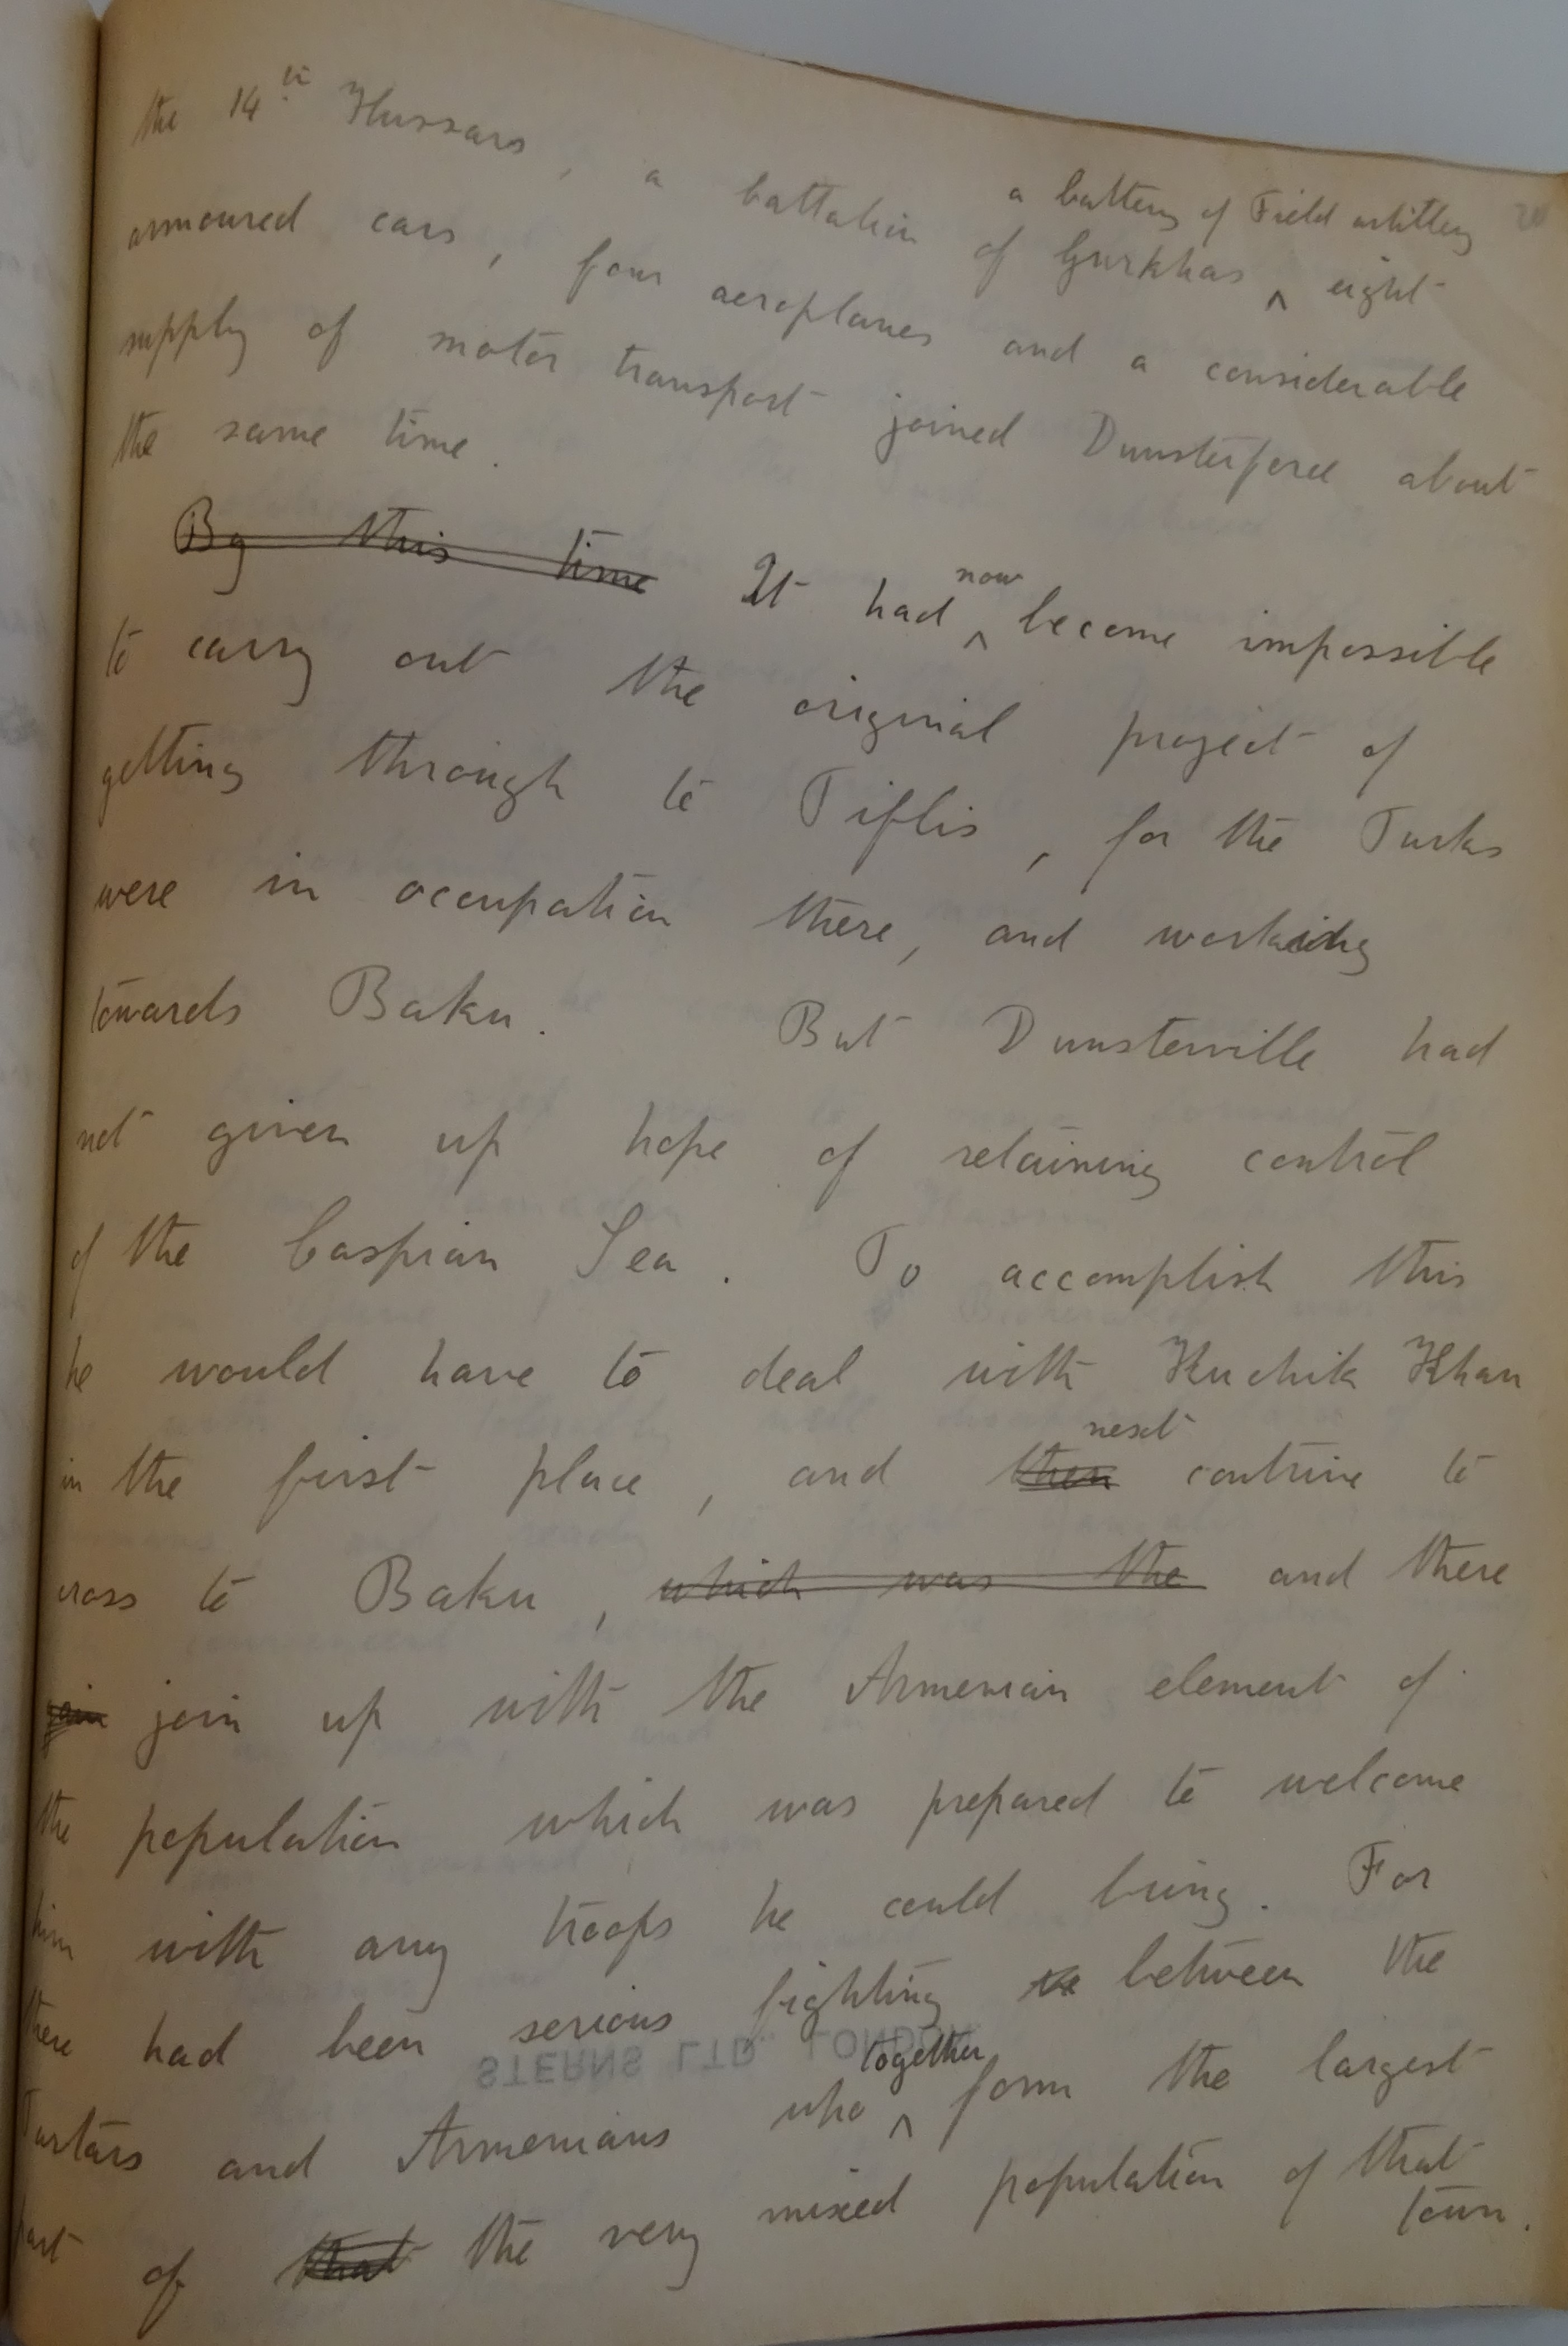 the 14th Hussars, a battalion of Gurkhas ^ a battery of Field artillery eight
armoured cars, four aeroplanes and a considerable
supply of motor transport joined Dunsterforce about
the same time.
By this time It had ^ now become impossible
to carry out the original project of
getting through to Tiflis, for the Turks
were in occupation there, and working
towards Baku. But Dunsterville had
not given up hope of retaining control
of the Caspian Sea. To accomplish this
he would have to deal with Kuchik Khan
in the first place, and then next contrive to
cross to Baku, which was the and there
join join up with the Armenian element of
the population which was prepared to welcome
him with any troops he could bring. For
there had been serious fighting between the
STERNS LTD. LONDON
Tartars and Armenians who ^ together form the largest
part of that the very mixed population of that
town.